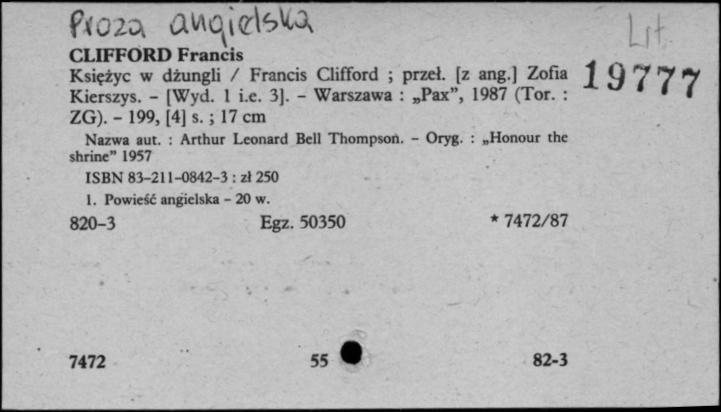 Proza angielska
Lit.
CLIFFORD Francis
19777
Księżyc w dżungli / Francis Clifford ; przeł. [z ang.] Zofia
Kierszys. – [Wyd. 1 i.e. 3]. – Warszawa : „Pax”, 1987 (Tor. :
ZG). – 199, [4] s. ; 17 cm
Nazwa aut. : Arthur Leonard Bell Thompson. – Oryg. : „Honour the
shrine” 1957
ISBN 83-211-0842-3 : zł 250
1. Powieść angielska – 20 w.
820-3 Egz. 50350 * 7472/87
7472 55 82-3